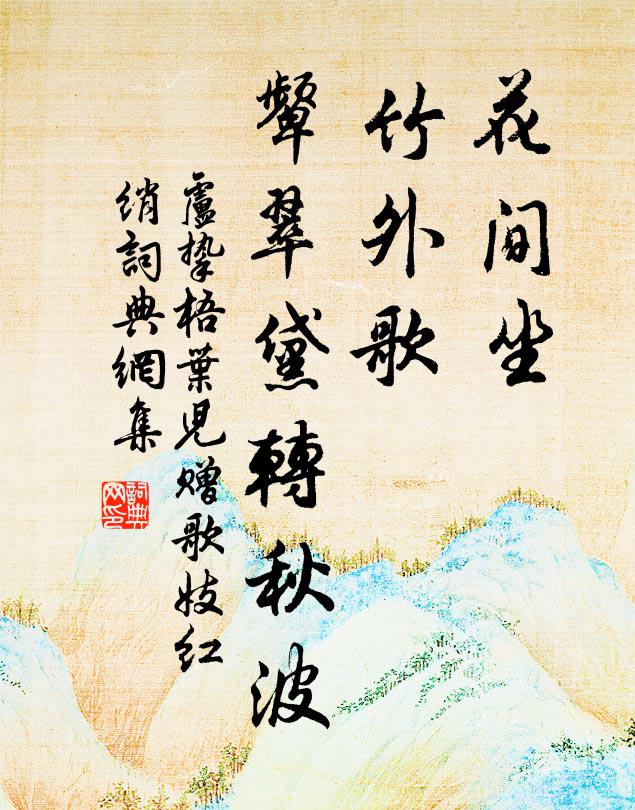 花間坐
竹外歌
顰翠黛轉秋波
盧摯梧葉兒贈歌妓紅
綃詞典網集
詞典網印